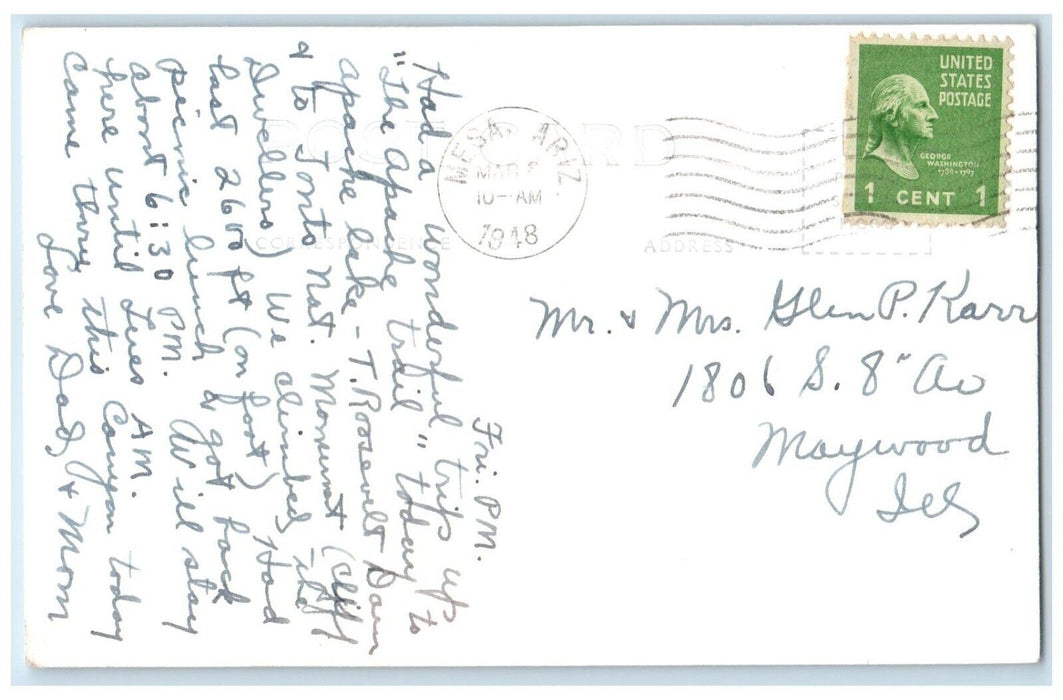 POST CARD
CORRESPONDENCE
ADDRESS
UNITED
STATES
POSTAGE
GEORGE
WASHINGTON
1789-1797
1 CENT 1
MESA. ARIZ
MAR
10-AM
1948
Mr. & Mrs. Glen P. Karr
1806 S. 8" Av
Maywood
Ills
Fri. PM.
Had a wonderful trip up
"The Apache trail" today to
apache lake - T. Roosevelt Dam
& to Tonto Nat. Monument (Cliff
Dwellers) We climbed the
last 260 ft (on foot) Had
picnic lunch & got back
about 6:30 PM. Will stay
here until Tues AM.
Came thru this Canyon today
Love Dad, & Mom